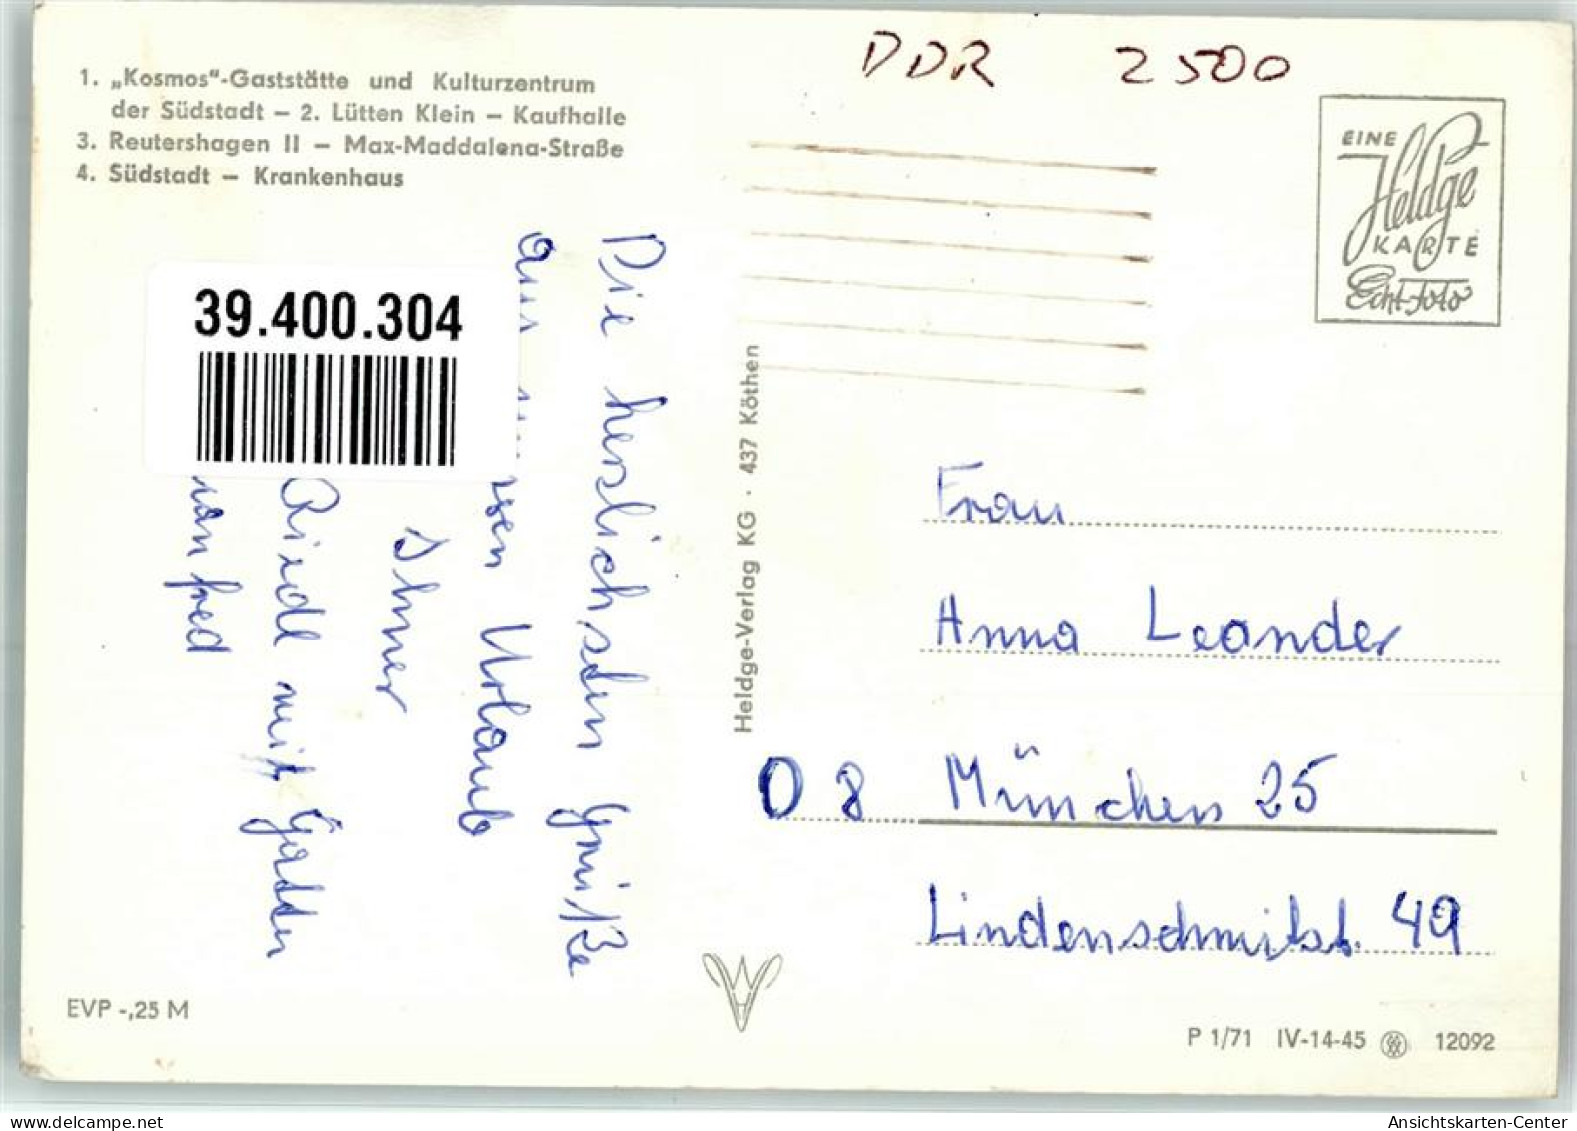 DDR 2500
1. „Kosmos“-Gaststätte und Kulturzentrum
der Südstadt – 2. Lütten Klein – Kaufhalle
3. Reutershagen II – Max-Maddalena-Straße
4. Südstadt – Krankenhaus
EINE
Heldge
KARTE
Echt-Foto
39.400.304
Die herzlichsten Grüße
aus Urlaub
Ihner
Riedl mit Gatten
Heldge-Verlag KG · 437 Köthen
Frau
Anna Leander
D 8 München 25
Lindenschmitst. 49
EVP -,25 M
P 1/71 IV-14-45 12092
Ansichtskarten-Center